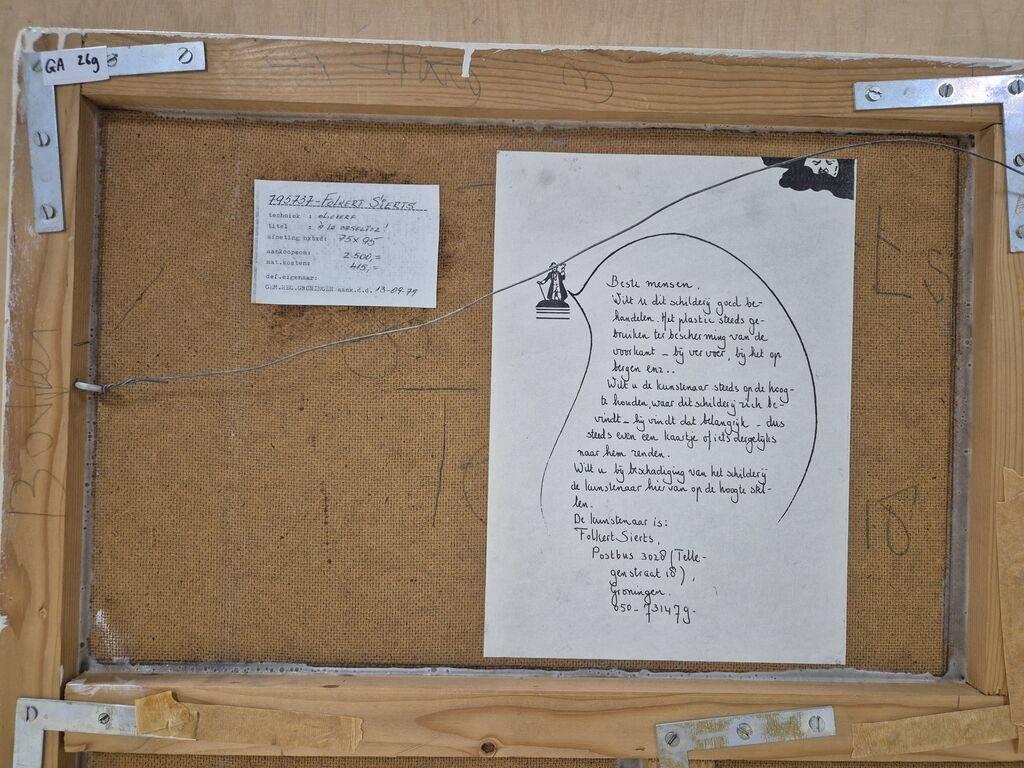 GA 26g
795737-FOLKERT SIERTS
techniek : OLIEVERF
titel : à la
afmeting hxbxd: 75 x 95
aankoopsom: 2.500,=
mat.kosten: 415,=
def.eigenaar:
GEM.REG.GRONINGEN aank.d.d. 13-09-79
Beste mensen,
Wilt u dit schilderij goed be-
handelen. Het plastic steeds ge-
bruiken ter bescherming van de
voorkant - bij vervoer, bij het op
bergen enz..
Wilt u de kunstenaar steeds op de hoog-
te houden, waar dit schilderij zich be-
vindt - hij vindt dat belangrijk - dus
steeds even een kaartje of iets dergelijks
naar hem zenden.
Wilt u bij beschadiging van het schilderij
de kunstenaar hier van op de hoogte stel-
len.
De kunstenaar is:
Folkert Sierts,
Postbus 3028 (Telle-
genstraat 18),
Groningen.
050-731479-